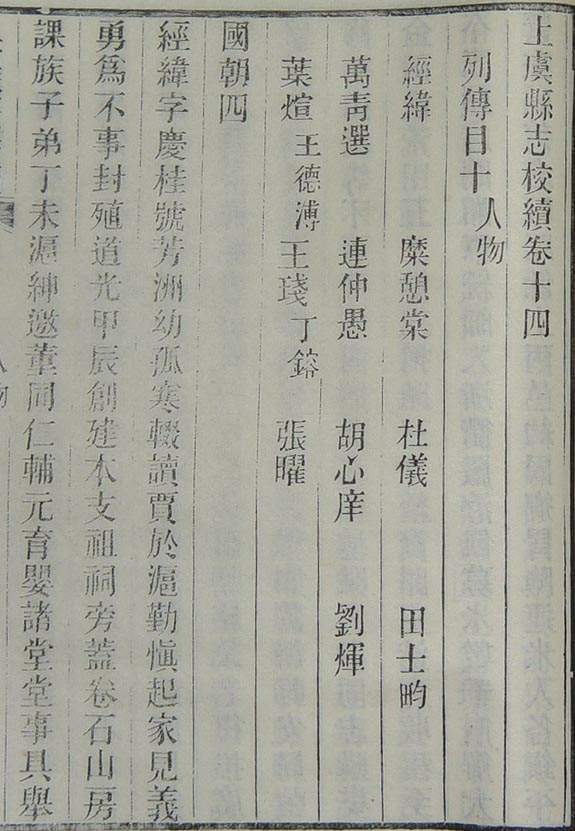 上虞縣志校續卷十四
列傳目十 人物
經緯 糜憩棠 杜儀 田士畇
萬青選 連仲愚 胡心庠 劉煇
葉煊 王德溥 王琖 丁鎔 張曜
國朝四
經緯字慶桂號芳洲幼孤寒輟讀賈於滬勤慎起家見義
勇為不事封殖道光甲辰創建本支祖祠旁蓋卷石山房
課族子弟丁未滬紳邀董同仁輔元育嬰諸堂堂事具舉